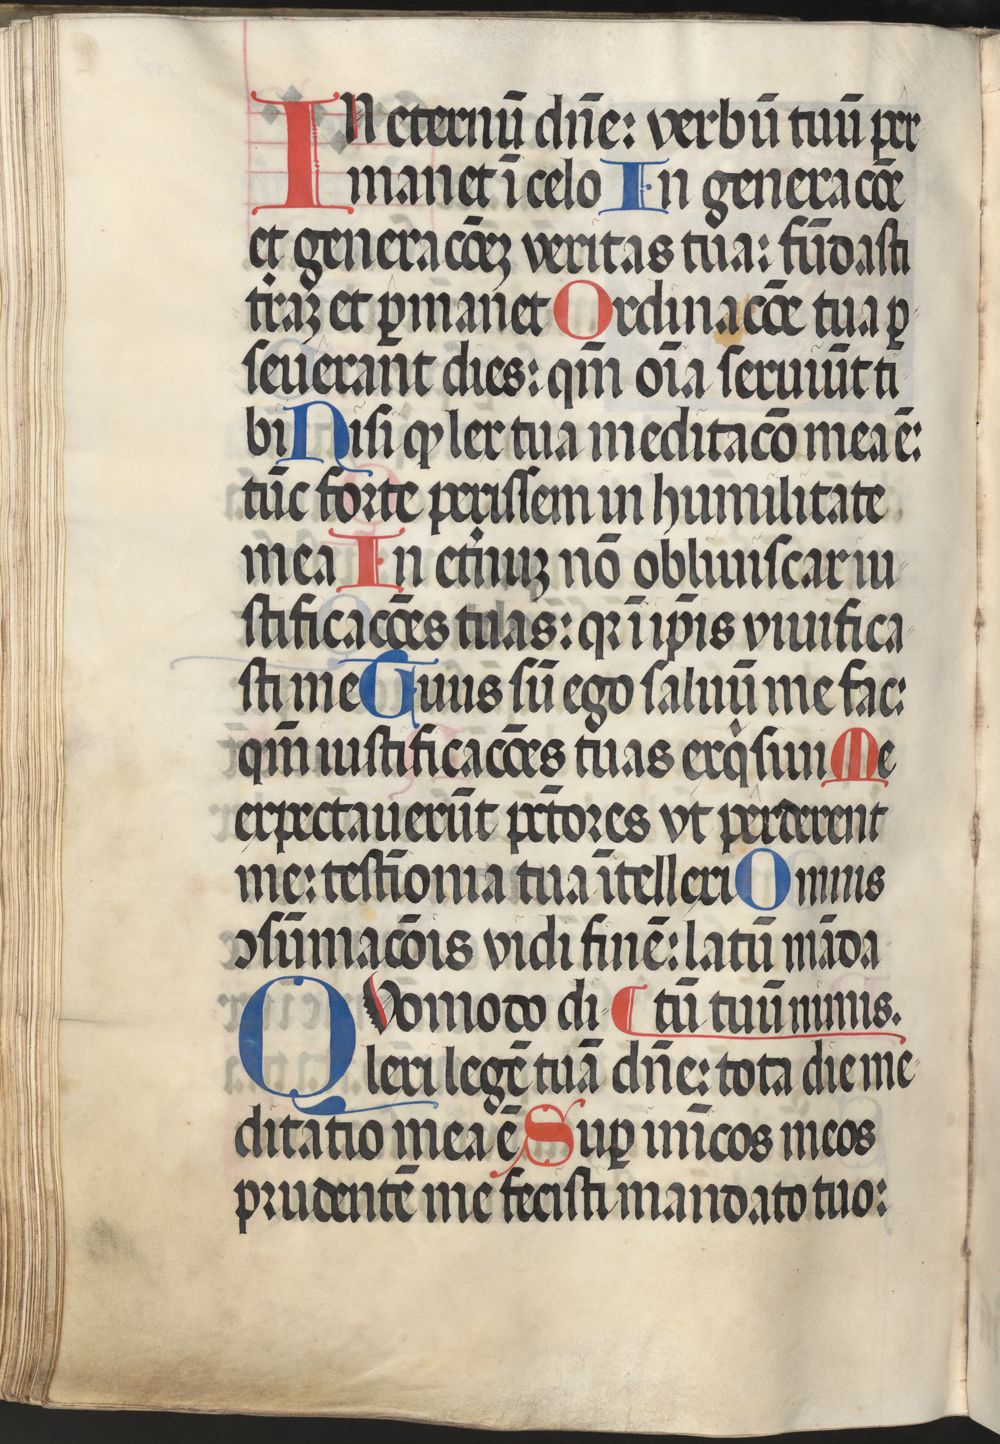 In eternū dn̄e: verbū tuū per
manet ī celo In generacōe
et generacōeꝫ veritas tua: fūdasti
tr̄aꝫ et ꝑmanet Ordinacōe tua ꝑ
seuerant dies: qm̄ oīa seruiūt ti
bi Nisi ꝙ lex tua meditacō mea ē:
tūc forte perissem in humilitate
mea In et̄nuꝫ nō obliuiscar iu
stificacōes tuas: qr ī ip̄is viuifica
sti me Tuus sū ego saluū me fac:
qm̄ iustificacōes tuas exq̄siui Me
expectauerūt pc̄tores vt perderent
me: testīonia tua ītellexi Omnis
ꝯsūmacōis vidi finē: latū māda
Quomodo di ¶ tū tuū nimis.
lexi legē tuā dn̄e: tota die me
ditatio mea ē Suꝑ inīcos meos
prudentē me fecisti mandato tuo: